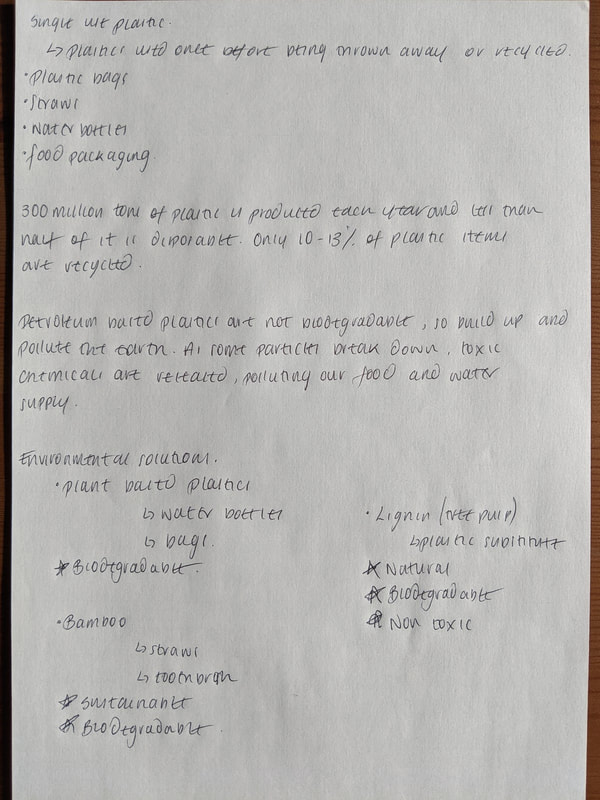 Single use plastic.
↳ plastics used once before being thrown away or recycled.
• Plastic bags
• Straws
• Water bottles
• food packaging.
300 million tons of plastic is produced each year and less than
half of it is disposable. Only 10-13% of plastic items
are recycled.
Petroleum based plastics are not biodegradable, so build up and
pollute the earth. As some particles break down, toxic
chemicals are released, polluting our food and water
supply.
Environmental solutions.
• plant based plastics
↳ water bottles
↳ bags.
* Biodegradable.
• Lignin (tree pulp)
↳ plastic substitute
* Natural
* Biodegradable
* Non toxic
• Bamboo
↳ straws
↳ toothbrush
* Sustainable
* Biodegradable.